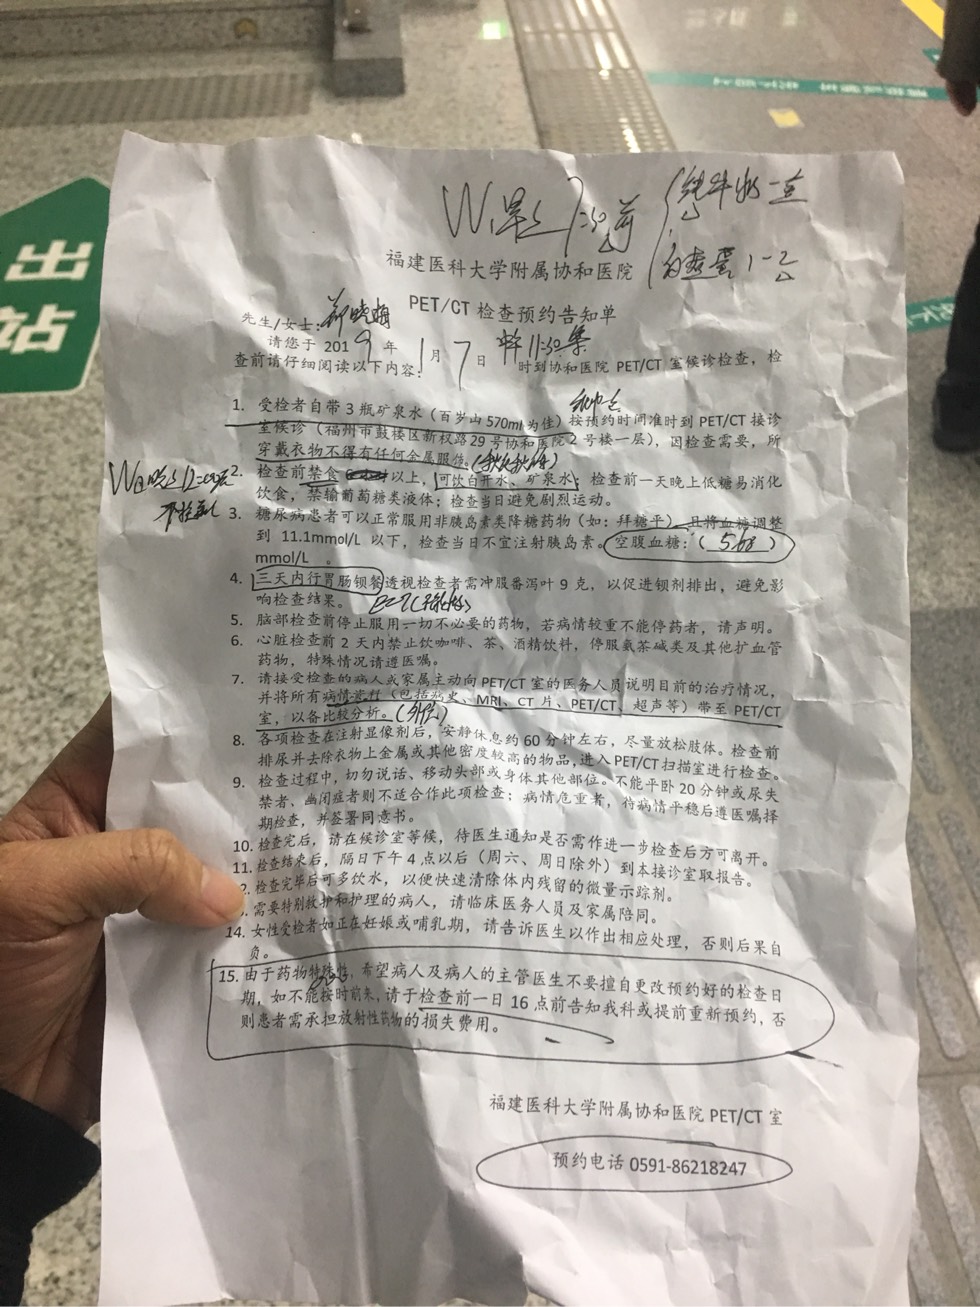 出
站
7:30前
纯牛奶一盒
1-2
福建医科大学附属协和医院
PET/CT 检查预约告知单
先生/女士:
请您于 2019 年 1 月 7 日 11:30 时到协和医院 PET/CT 室候诊检查,检
查前请仔细阅读以下内容:
1. 受检者自带 3 瓶矿泉水(百岁山 570ml 为佳)按预约时间准时到 PET/CT 接诊
室候诊(福州市鼓楼区新权路 29 号协和医院 2 号楼一层),因检查需要,所
穿戴衣物不得有任何金属服饰。
2. 检查前禁食 以上,可饮白开水、矿泉水;检查前一天晚上低糖易消化
饮食,禁输葡萄糖类液体;检查当日避免剧烈运动。
3. 糖尿病患者可以正常服用非胰岛素类降糖药物(如:拜糖平),且将血糖调整
到 11.1mmol/L 以下,检查当日不宜注射胰岛素。空腹血糖:( 5.68 )
mmol/L 。
4. 三天内行胃肠钡餐透视检查者需冲服番泻叶 9 克,以促进钡剂排出,避免影
响检查结果。
5. 脑部检查前停止服用一切不必要的药物,若病情较重不能停药者,请声明。
6. 心脏检查前 2 天内禁止饮咖啡、茶、酒精饮料,停服氨茶碱类及其他扩血管
药物,特殊情况请遵医嘱。
7. 请接受检查的病人或家属主动向 PET/CT 室的医务人员说明目前的治疗情况,
并将所有病情资料(包括病史、MRI、CT 片、PET/CT、超声等)带至 PET/CT
室,以备比较分析。
8. 各项检查在注射显像剂后,安静休息约 60 分钟左右,尽量放松肢体。检查前
排尿并去除衣物上金属或其他密度较高的物品,进入 PET/CT 扫描室进行检查。
9. 检查过程中,切勿说话、移动头部或身体其他部位。不能平卧 20 分钟或尿失
禁者、幽闭症者则不适合作此项检查;病情危重者,待病情平稳后遵医嘱择
期检查,并签署同意书。
10. 检查完后,请在候诊室等候,待医生通知是否需作进一步检查后方可离开。
11. 检查结束后,隔日下午 4 点以后(周六、周日除外)到本接诊室取报告。
2. 检查完毕后可多饮水,以便快速清除体内残留的微量示踪剂。
. 需要特别救护和护理的病人,请临床医务人员及家属陪同。
14. 女性受检者如正在妊娠或哺乳期,请告诉医生以作出相应处理,否则后果自
负。
15. 由于药物特殊性,希望病人及病人的主管医生不要擅自更改预约好的检查日
期,如不能按时前来,请于检查前一日 16 点前告知我科或提前重新预约,否
则患者需承担放射性药物的损失费用。
福建医科大学附属协和医院 PET/CT 室
预约电话 0591-86218247